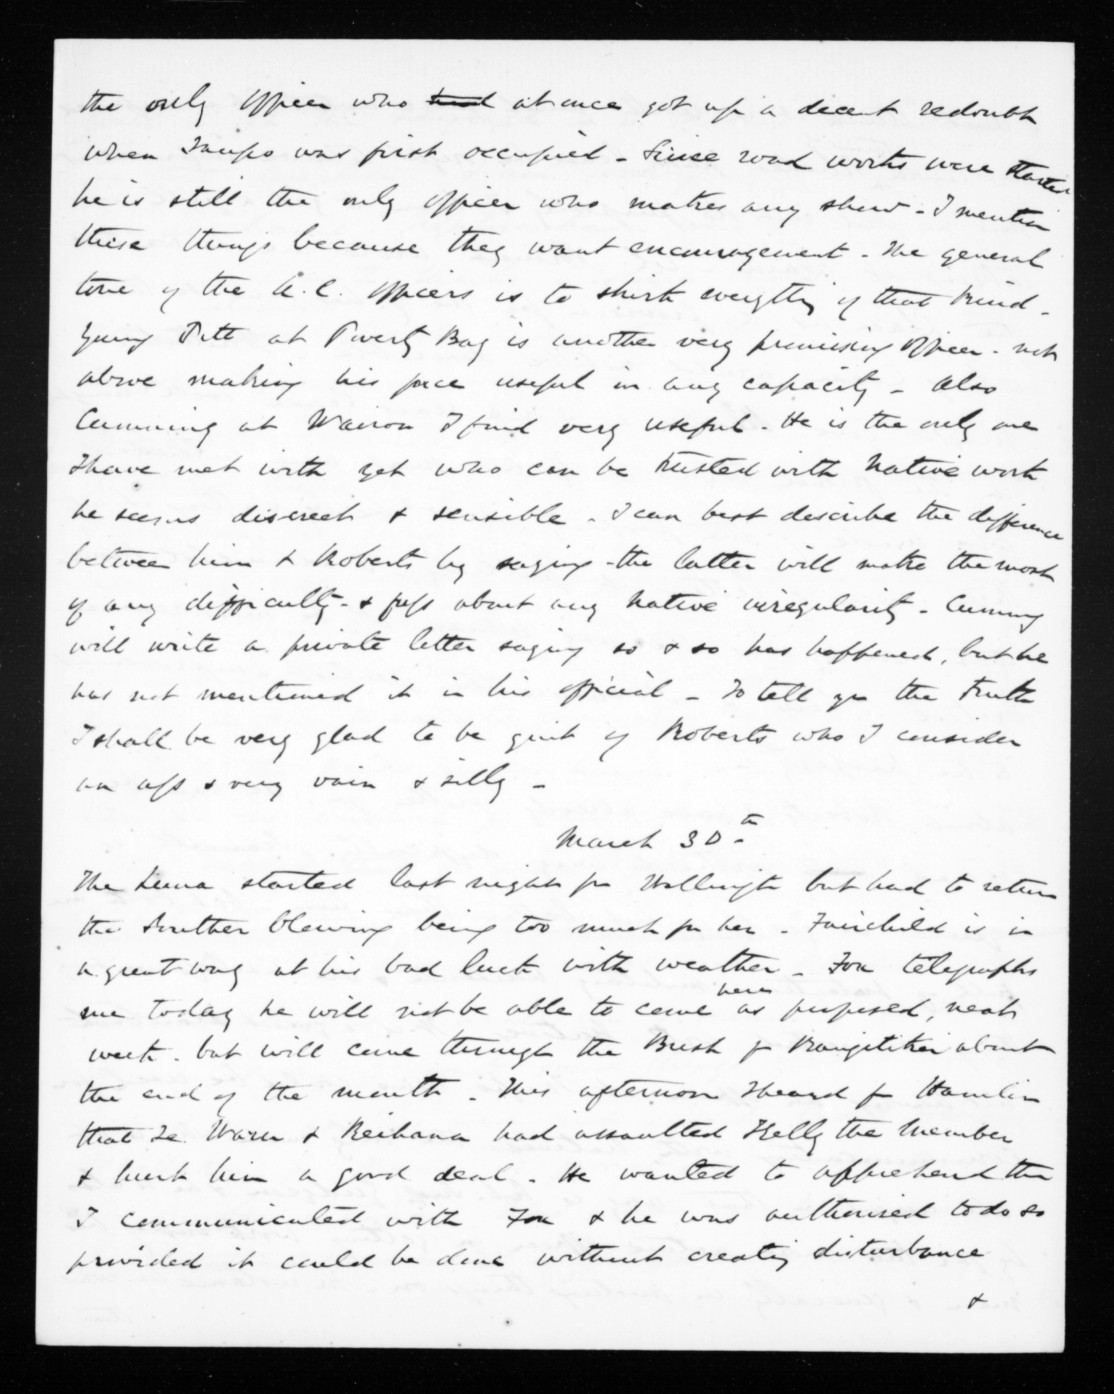 the only officer who had at once got up a decent redoubt
when Taupo was first occupied - Since road works were started
he is still the only officer who makes any show - I mention
these things because they want encouragement - The general
tone of the A.C. officers is to shirk everything of that kind -
young Pitt at Poverty Bay is another very promising officer - not
above making his force useful in any capacity - Also
Cumming at Wairoa I find very useful - He is the only one
I have met with yet who can be trusted with Native work
he seems discreet & sensible - I can best describe the difference
between him & Roberts by saying - the latter will make the most
of any difficulty - & fuss about any Native irregularity - Cumming
will write a private letter saying so & so has happened, but he
has not mentioned it in his official - To tell you the truth
I shall be very glad to be quit of Roberts who I consider
an ass & very vain & silly -
March 30th
The Luna started last night for Wellington but had to return
the Souther blowing being too much for her - Fairchild is in
a great way at his bad luck with weather - Fox telegraphs
me today he will not be able to come here as proposed, next
week - but will come through the Bush fr Rangitikei about
the end of the month - This afternoon I heard fr Hamlin
that Te Waru & Reihana had assaulted Kelly the Member
& hurt him a good deal - He wanted to apprehend them
I communicated with Fox & he was authorised to do so
provided it could be done without creating disturbance
&